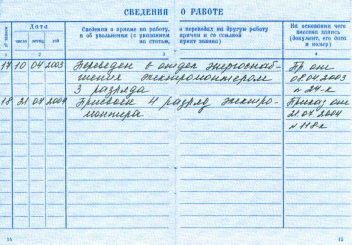 СВЕДЕНИЯ О РАБОТЕ
№ записи
Дата
Сведения о приеме на работу, о переводах на другую работу
и об увольнении (с указанием причин и со ссылкой
на статью, пункт закона)
На основании чего
внесена запись
(документ, его дата
и номер)
1 2 3 4
17 10 04 2003 Переведен в отдел энергоснаб- Пр от
жения электромонтером 08.04.2003
3 разряда № 24-к
18 21 07 2004 Присвоен 4 разряд электро- Приказ от
монтера 21.07.2004
№ 118к
14 15